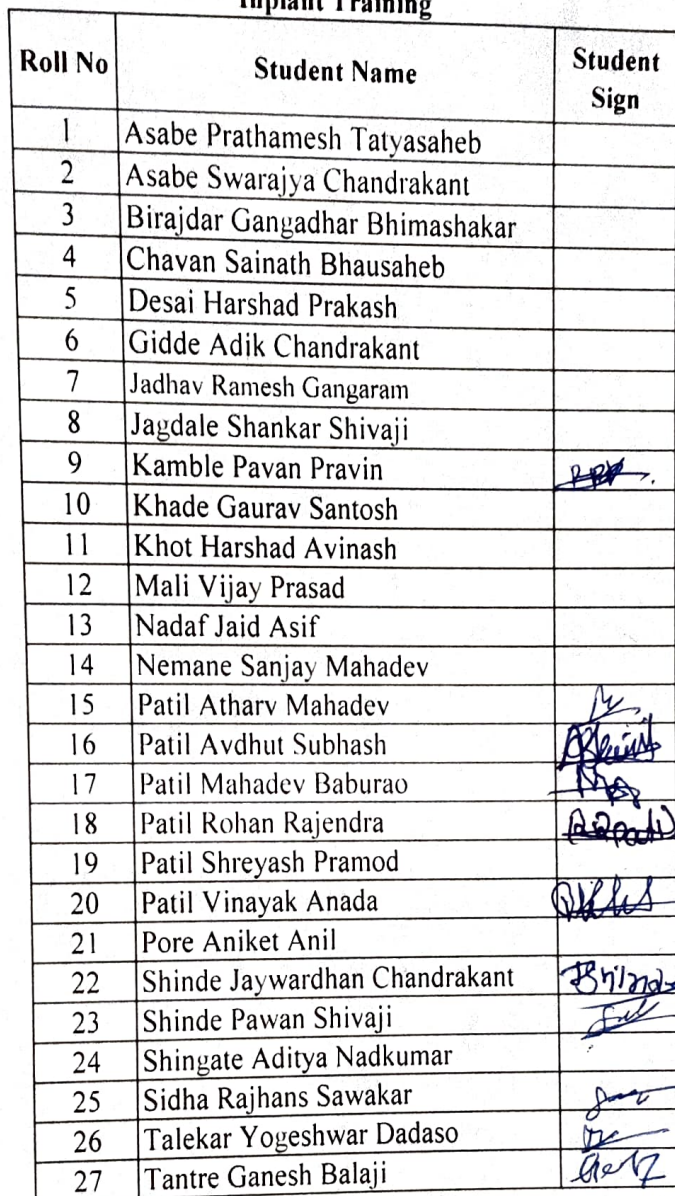 Inplant Training
Roll No Student Name Student Sign
1 Asabe Prathamesh Tatyasaheb
2 Asabe Swarajya Chandrakant
3 Birajdar Gangadhar Bhimashakar
4 Chavan Sainath Bhausaheb
5 Desai Harshad Prakash
6 Gidde Adik Chandrakant
7 Jadhav Ramesh Gangaram
8 Jagdale Shankar Shivaji
9 Kamble Pavan Pravin
10 Khade Gaurav Santosh
11 Khot Harshad Avinash
12 Mali Vijay Prasad
13 Nadaf Jaid Asif
14 Nemane Sanjay Mahadev
15 Patil Atharv Mahadev
16 Patil Avdhut Subhash
17 Patil Mahadev Baburao
18 Patil Rohan Rajendra
19 Patil Shreyash Pramod
20 Patil Vinayak Anada
21 Pore Aniket Anil
22 Shinde Jaywardhan Chandrakant
23 Shinde Pawan Shivaji
24 Shingate Aditya Nadkumar
25 Sidha Rajhans Sawakar
26 Talekar Yogeshwar Dadaso
27 Tantre Ganesh Balaji